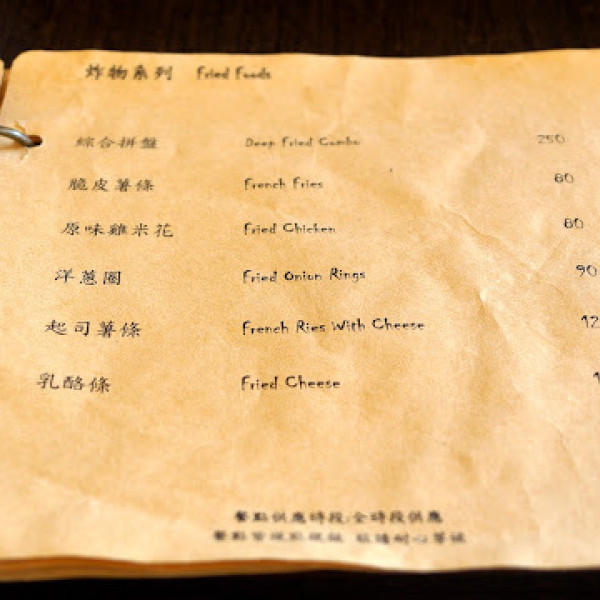 炸物系列 Fried Foods
綜合拼盤 Deep Fried Combo 250
脆皮薯條 French Fries 80
原味雞米花 Fried Chicken 80
洋蔥圈 Fried Onion Rings 90
起司薯條 French Ries With Cheese 12
乳酪條 Fried Cheese 1
餐點供應時段:全時段供應
餐點皆現點現做 敬請耐心等候